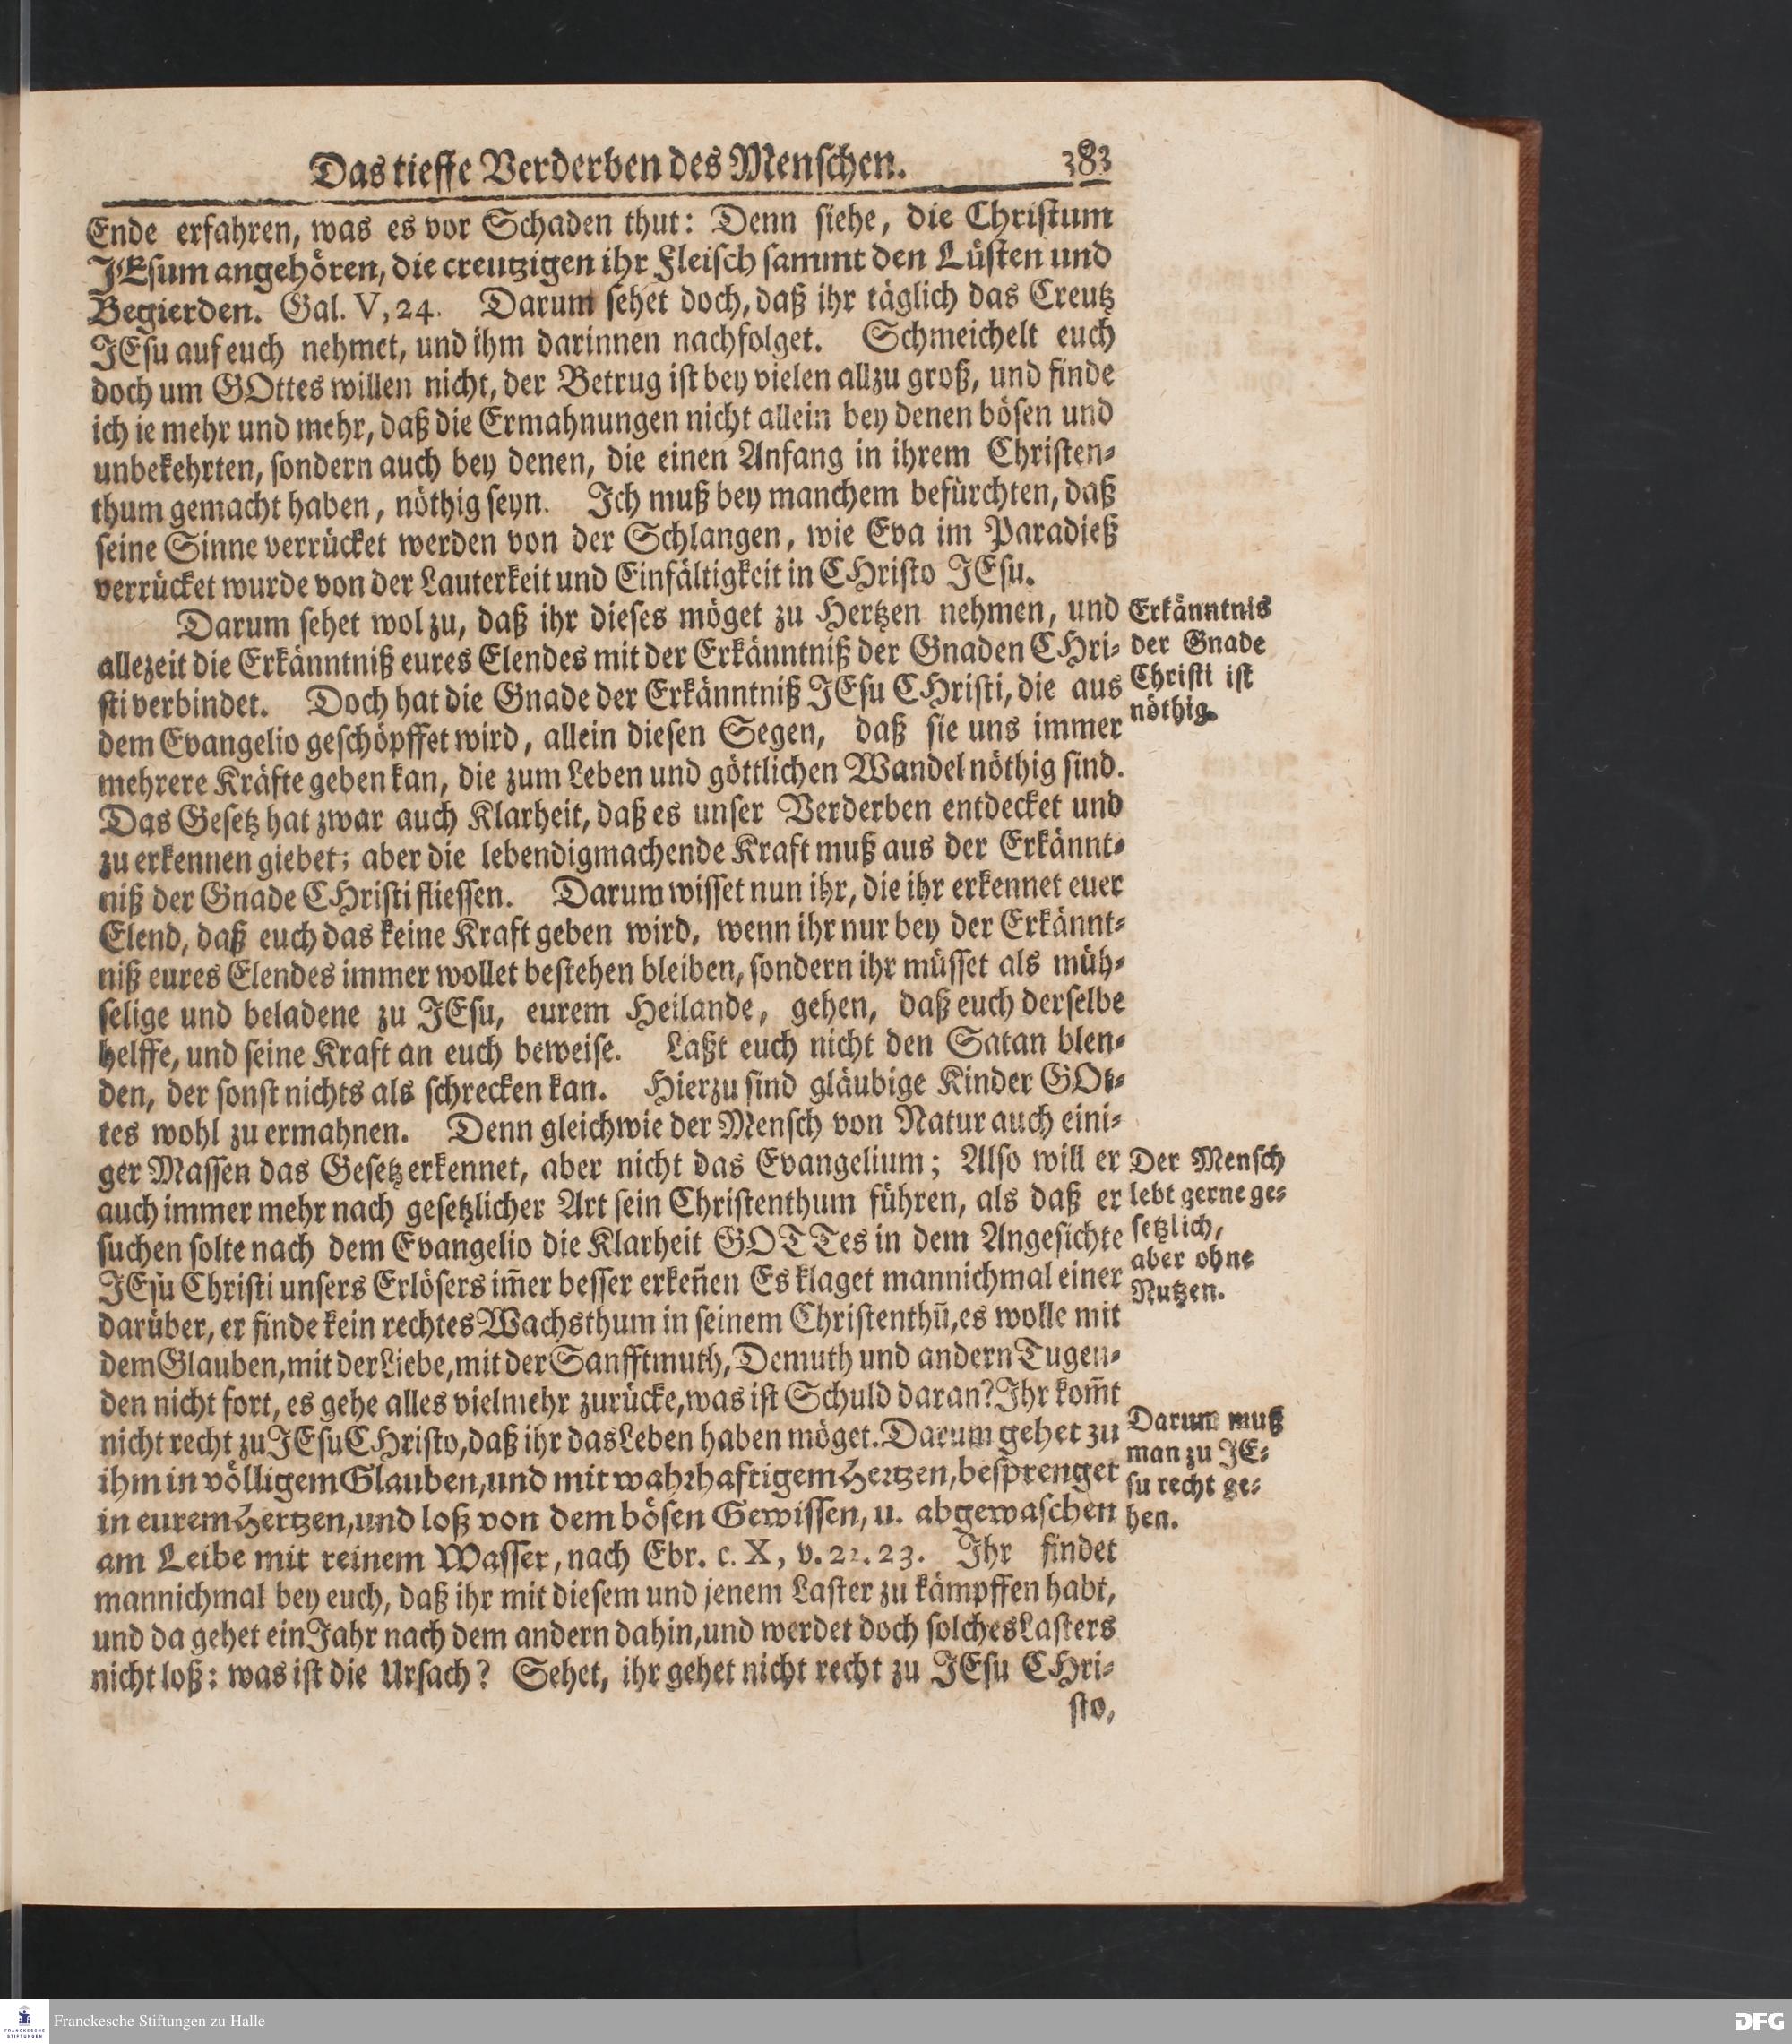 Das tieffe Verderben des Menschen. 383
Ende erfahren, was es vor Schaden thut: Denn siehe, die Christum
JEsum angehören, die creutzigen ihr Fleisch sammt den Lüsten und
Begierden. Gal. V, 24. Darum sehet doch, daß ihr täglich das Creutz
JEsu auf euch nehmet, und ihm darinnen nachfolget. Schmeichelt euch
doch um GOttes willen nicht, der Betrug ist bey vielen allzu groß, und finde
ich ie mehr und mehr, daß die Ermahnungen nicht allein bey denen bösen und
unbekehrten, sondern auch bey denen, die einen Anfang in ihrem Christen-
thum gemacht haben, nöthig seyn. Ich muß bey manchem befürchten, daß
seine Sinne verrücket werden von der Schlangen, wie Eva im Paradieß
verrücket wurde von der Lauterkeit und Einfältigkeit in CHristo JEsu.
Darum sehet wol zu, daß ihr dieses möget zu Hertzen nehmen, und
allezeit die Erkänntniß eures Elendes mit der Erkänntniß der Gnaden CHri-
sti verbindet. Doch hat die Gnade der Erkänntniß JEsu CHristi, die aus
dem Evangelio geschöpffet wird, allein diesen Segen, daß sie uns immer
mehrere Kräfte geben kan, die zum Leben und göttlichen Wandel nöthig sind.
Das Gesetz hat zwar auch Klarheit, daß es unser Verderben entdecket und
zu erkennen giebet; aber die lebendigmachende Kraft muß aus der Erkännt-
niß der Gnade CHristi fliessen. Darum wisset nun ihr, die ihr erkennet euer
Elend, daß euch das keine Kraft geben wird, wenn ihr nur bey der Erkännt-
niß eures Elendes immer wollet bestehen bleiben, sondern ihr müsset als müh-
selige und beladene zu JEsu, eurem Heilande, gehen, daß euch derselbe
helffe, und seine Kraft an euch beweise. Laßt euch nicht den Satan blen-
den, der sonst nichts als schrecken kan. Hierzu sind gläubige Kinder GOt-
tes wohl zu ermahnen. Denn gleichwie der Mensch von Natur auch eini-
ger Massen das Gesetz erkennet, aber nicht das Evangelium; Also will er
auch immer mehr nach gesetzlicher Art sein Christenthum führen, als daß er
suchen solte nach dem Evangelio die Klarheit GOTTes in dem Angesichte
JEsu Christi unsers Erlösers im̃er besser erkeñen Es klaget mannichmal einer
darüber, er finde kein rechtes Wachsthum in seinem Christenthũ, es wolle mit
dem Glauben, mit der Liebe, mit der Sanfftmuth, Demuth und andern Tugen-
den nicht fort, es gehe alles vielmehr zurücke, was ist Schuld daran? Ihr kom̃t
nicht recht zu JEsu CHristo, daß ihr das Leben haben möget. Darum gehet zu
ihm in völligem Glauben, und mit wahrhaftigem Hertzen, besprenget
in eurem Hertzen, und loß von dem bösen Gewissen, u. abgewaschen
am Leibe mit reinem Wasser, nach Ebr. c. X, v. 22. 23. Ihr findet
mannichmal bey euch, daß ihr mit diesem und jenem Laster zu kämpffen habt,
und da gehet ein Jahr nach dem andern dahin, und werdet doch solches Lasters
nicht loß: was ist die Ursach? Sehet, ihr gehet nicht recht zu JEsu CHri-
sto,
Erkänntnis
der Gnade
Christi ist
nöthig.
Der Mensch
lebt gerne ge-
setzlich,
aber ohne
Nutzen.
Darum muß
man zu JE-
su recht ge-
hen.
FRANCKESCHE
STIFTUNGEN
Franckesche Stiftungen zu Halle
DFG